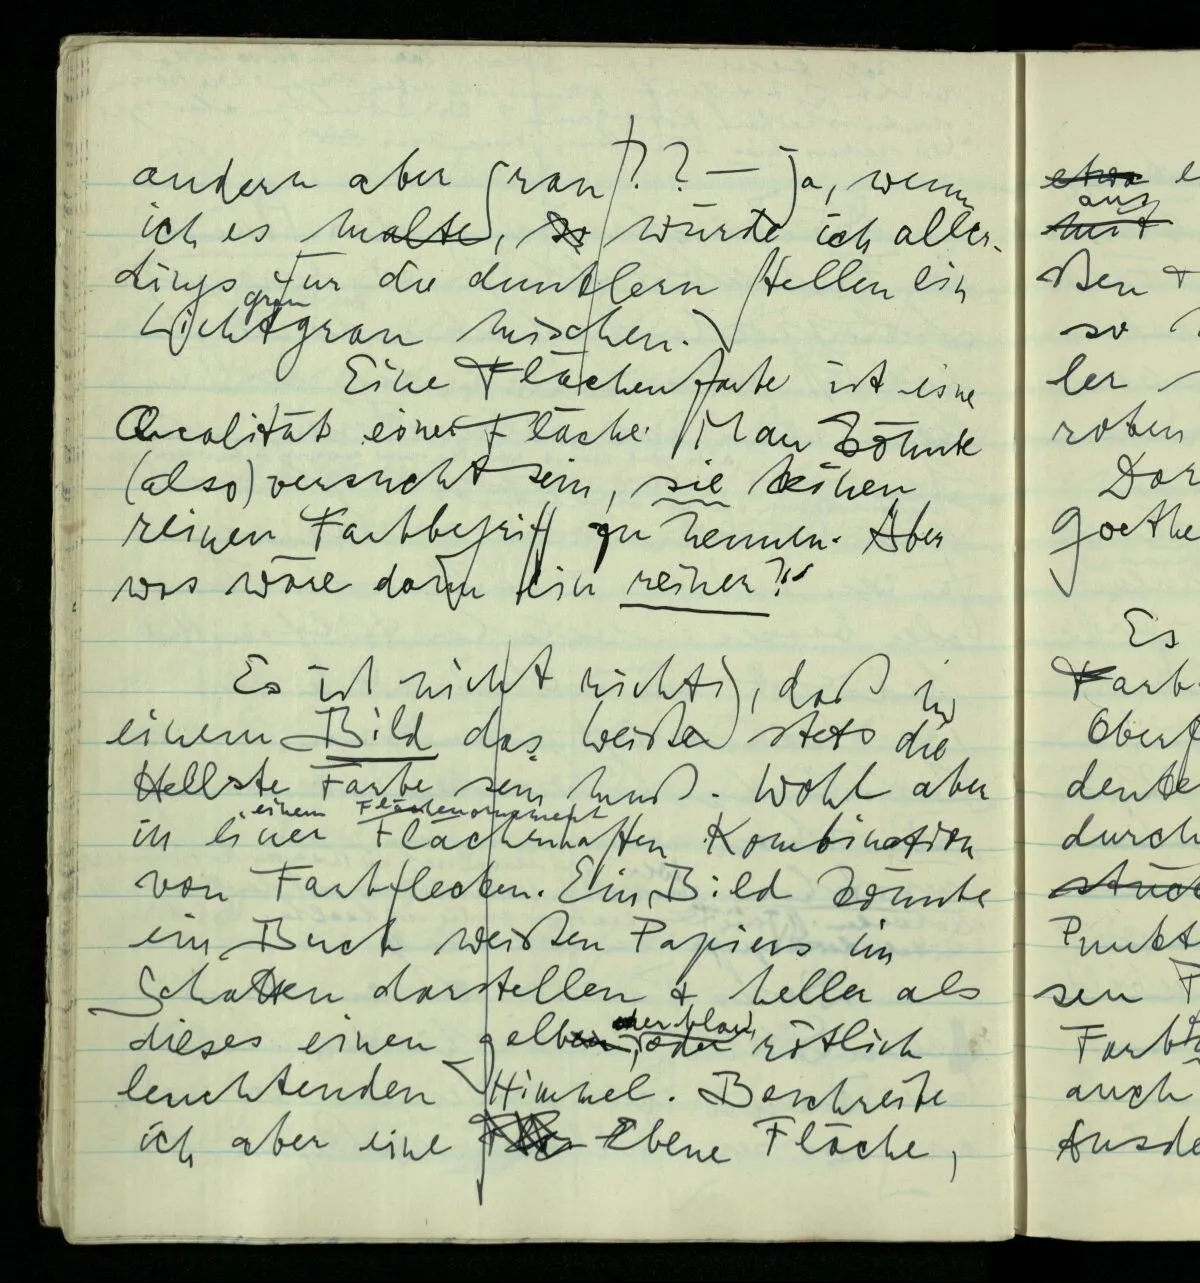 andern aber grau?? — Ja, wenn
ich es malte, so würde ich aller-
dings für die dunklern Stellen ein
grau
Lichtgrau mischen.
Eine Flächenfarbe ist eine
Qualität einer Fläche. Man könnte
(also) versucht sein, sie keinen
reinen Farbbegriff zu nennen. Aber
was wäre dann ein reiner?!
Es ist nicht richtig, daß in
einem Bild das Weiße stets die
Hellste Farbe sein muß. Wohl aber
einem Flächenornament
in einer Flächenhaften Kombination
von Farbflecken. Ein Bild könnte
ein Buch weißen Papiers im
Schatten darstellen & heller als
oder blau
dieses einen gelben, oder rötlich
leuchtenden Himmel. Beschreibe
ich aber eine Ebene Fläche,
etwa
aus
mit
ßen
so
ler
roten
Goethe
Es
Farb
Oberf
deute
durch
Punkt
sen
Farb
auch